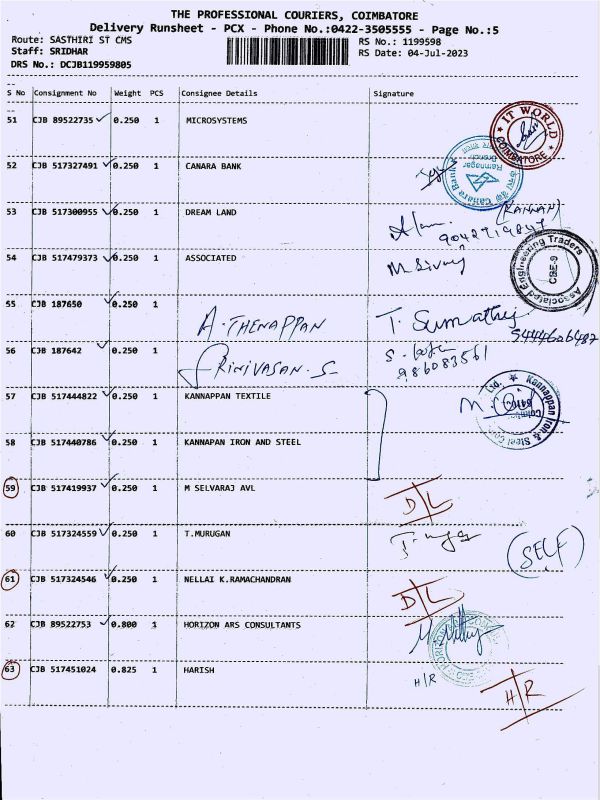 THE PROFESSIONAL COURIERS, COIMBATORE
Delivery Runsheet - PCX - Phone No.:0422-3505555 - Page No.:5
Route: SASTHIRI ST CMS RS No.: 1199598
Staff: SRIDHAR RS Date: 04-Jul-2023
DRS No.: DCJB119959805
S No Consignment No Weight PCS Consignee Details Signature
51 CJB 89522735 0.250 1 MICROSYSTEMS IT WORLD COIMBATORE
52 CJB 517327491 0.250 1 CANARA BANK Canara Bank Ramnagar Branch
53 CJB 517300955 0.250 1 DREAM LAND (KANNAN)
54 CJB 517479373 0.250 1 ASSOCIATED M Sivaraj Associated Engineering Traders CBE-9
55 CJB 187650 0.250 1 A. THENAPPAN T. Sumathy
56 CJB 187642 0.250 1 SRINIVASAN. S
986083561
57 CJB 517444822 0.250 1 KANNAPPAN TEXTILE Kannappan Iron & Steel Ltd.
58 CJB 517440786 0.250 1 KANNAPAN IRON AND STEEL
59 CJB 517419937 0.250 1 M SELVARAJ AVL D/L
60 CJB 517324559 0.250 1 T.MURUGAN (SELF)
61 CJB 517324546 0.250 1 NELLAI K.RAMACHANDRAN D/L
62 CJB 89522753 0.800 1 HORIZON ARS CONSULTANTS
63 CJB 517451024 0.825 1 HARISH H/R H/R